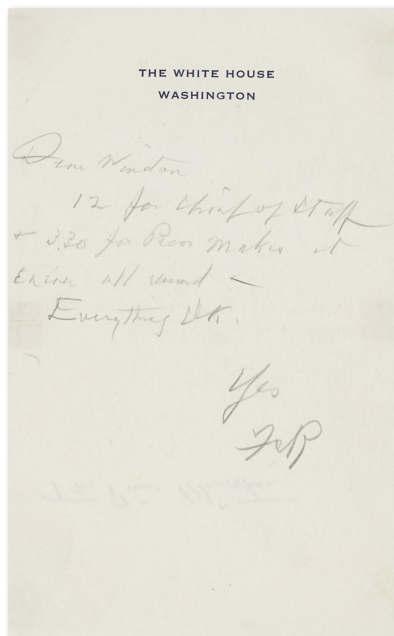 THE WHITE HOUSE
WASHINGTON
Dear Winston
12 for Chief of Staff
+ 3.30 for Press makes it
easier all round –
Everything OK.
Yes
FDR